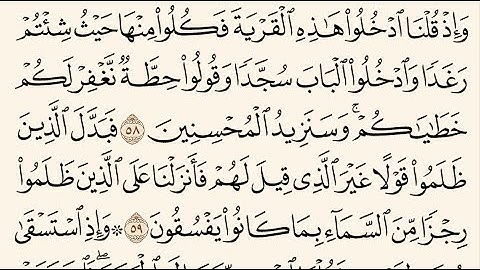 وَإِذْ قُلْنَا ٱدْخُلُوا۟ هَـٰذِهِ ٱلْقَرْيَةَ فَكُلُوا۟ مِنْهَا حَيْثُ شِئْتُمْ
رَغَدًا وَٱدْخُلُوا۟ ٱلْبَابَ سُجَّدًا وَقُولُوا۟ حِطَّةٌ نَّغْفِرْ لَكُمْ
خَطَـٰيَـٰكُمْ ۚ وَسَنَزِيدُ ٱلْمُحْسِنِينَ ٥٨ فَبَدَّلَ ٱلَّذِينَ
ظَلَمُوا۟ قَوْلًا غَيْرَ ٱلَّذِى قِيلَ لَهُمْ فَأَنزَلْنَا عَلَى ٱلَّذِينَ ظَلَمُوا۟
رِجْزًا مِّنَ ٱلسَّمَآءِ بِمَا كَانُوا۟ يَفْسُقُونَ ٥٩ ۞ وَإِذِ ٱسْتَسْقَىٰ